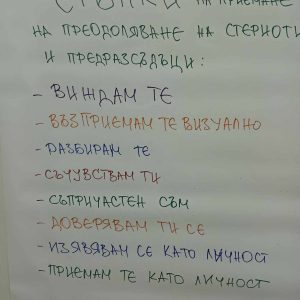 СТЪПКИ НА ПРИЕМАНЕ
НА ПРЕОДОЛЯВАНЕ НА СТЕРЕОТИ
И ПРЕДРАЗСЪДЪЦИ:
- ВИЖДАМ ТЕ
- ВЪЗПРИЕМАМ ТЕ ВИЗУАЛНО
- РАЗБИРАМ ТЕ
- СЪЧУВСТВАМ ТИ
- СЪПРИЧАСТЕН СЪМ
- ДОВЕРЯВАМ ТИ СЕ
- ИЗЯВЯВАМ СЕ КАТО ЛИЧНОСТ
- ПРИЕМАМ ТЕ КАТО ЛИЧНОСТ